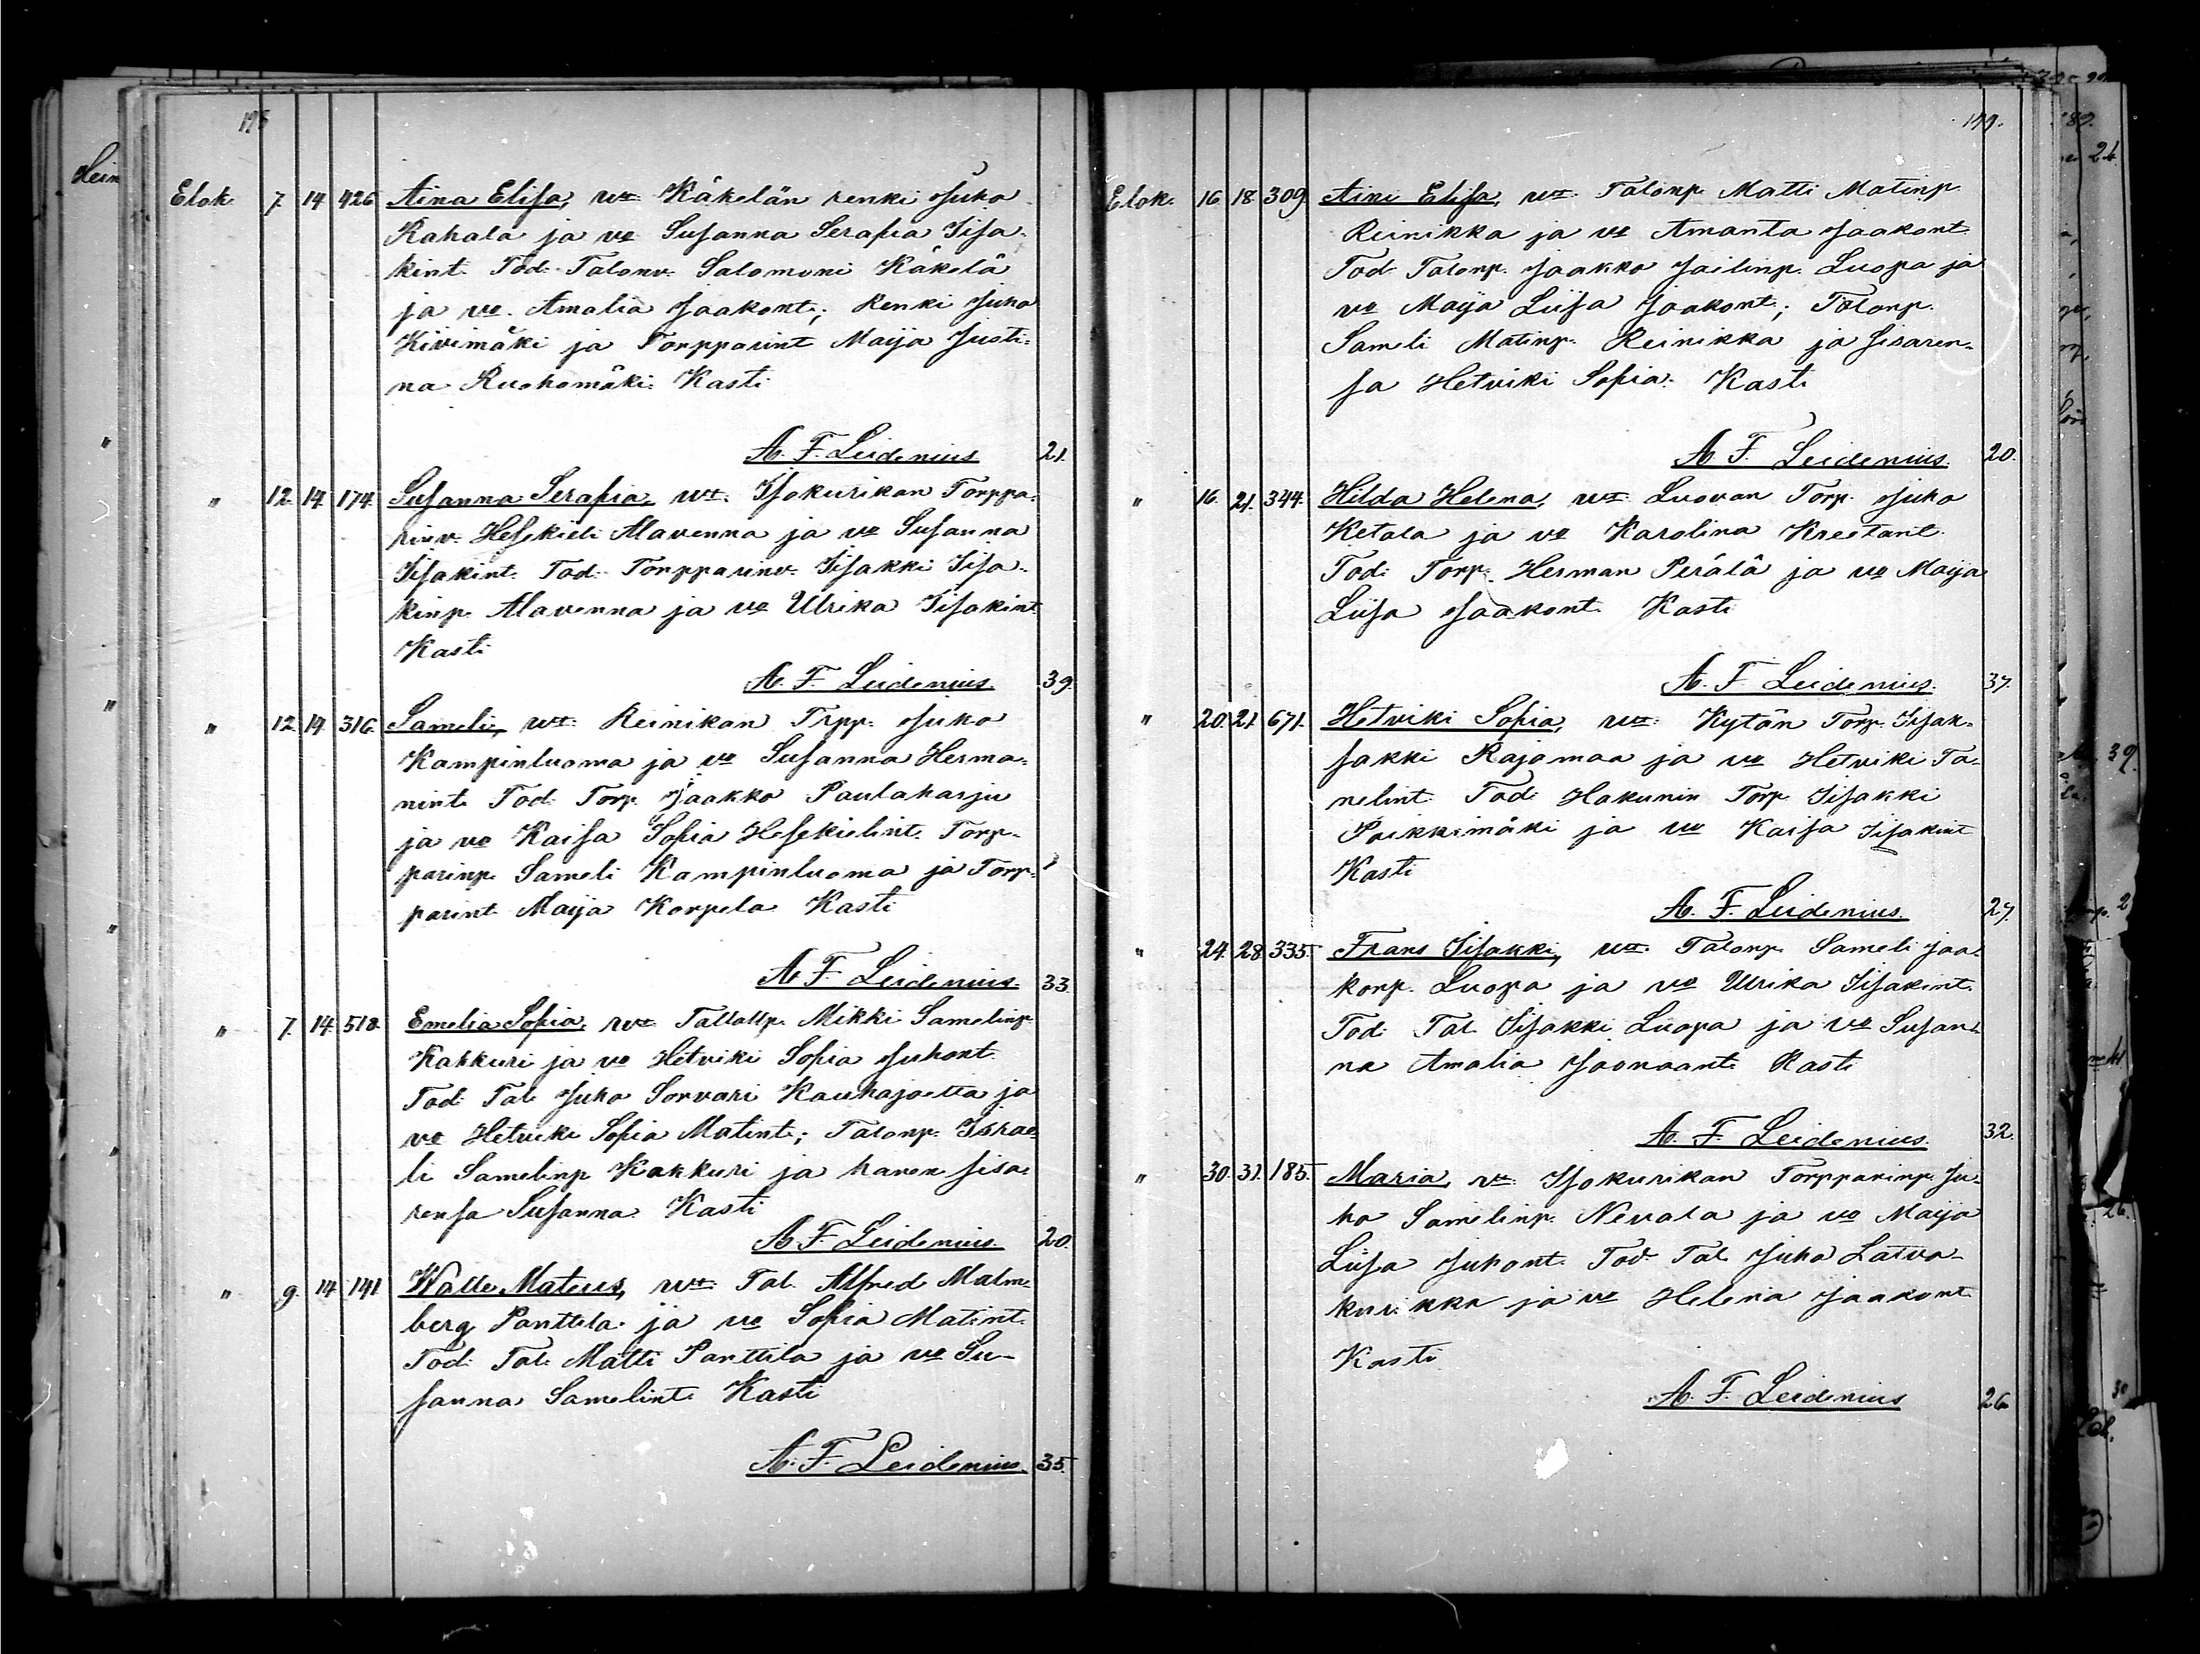 Elok. 7. 14. 426. Aina Elisa, vt. Käkelän renki Juho
Rahala ja vo Susanna Serafia Iisa-
kint. Tod. Talonv. Salomoni Käkelä
ja vo. Amalia Jaakont.; Renki Juho
Kivimäki ja Torpparint Maija Justi-
na Ruohomäki. Kasti
A. F. Leidenius 21.
" 12. 14. 174. Susanna Serafia, vt. Isokurikan Torppa-
rinv. Hesekieli Alavenna ja vo Susanna
Iisakint. Tod. Torpparinv. Iisakki Iisa-
kinp. Alavenna ja vo Ulrika Iisakint
Kasti
A. F. Leidenius. 39.
" 12. 14. 316. Sameli, vt. Reinikan Trpp. Juho
Kampinluoma ja vo Susanna Herma-
nint. Tod. Torp. Jaakko Paulaharju
ja vo Kaisa Sofia Hesekielint. Torp-
parinp. Sameli Kampinluoma ja Torp-
parint Maija Korpela Kasti
A. F. Leidenius. 33.
" 7. 14. 518. Emelia Sofia, vt. Mikki Samelinp.
Kakkuri ja vo Hetviki Sofia Juhont.
Tod. Tal. Juho Sorvari Kauhajoelta ja
vo Hetviki Sofia Matint.; Talonp. Israe-
li Samelinp Kakkuri ja hänen sisa-
rensa Susanna. Kasti
A. F. Leidenius. 20.
" 9. 14. 141. Walle Mateus, vt. Tal. Alfred Malm-
berg Panttila ja vo Sofia Matint.
Tod. Tal. Matti Panttila ja vo Su-
sanna Samelint. Kasti
A. F. Leidenius. 35.
149.
Elok. 16. 18. 309. Aini Elisa, vt. Talonp. Matti Matinp.
Reinikka ja vo Amanta Jaakont.
Tod. Talonp. Jaakko Luopa ja
vo Maija Liisa Jaakont.; Talonp.
Sameli Matinp. Reinikka ja sisaren-
sa Hetviki Sofia. Kasti
A. F. Leidenius. 20.
" 16. 21. 344. Hilda Helena, vt. Luovan Torp. Juho
Ketala ja vo Karolina Kreetant.
Tod. Torp. Herman Perälä ja vo Maija
Liisa Jaakont. Kasti
A. F. Leidenius. 37.
" 20. 21. 671. Hetviki Sofia, vt. Kytän Torp. Iisak-
sakki Rajamaa ja vo Hetviki Ta-
nelint. Tod. Hakunin Torp. Iisakki
Poikkimäki ja vo Kaisa Iisakint
Kasti
A. F. Leidenius. 27.
" 24. 28. 335. Frans Iisakki, vt. Talonp. Sameli Jaa-
konp. Luopa ja vo Ulrika Iisakint.
Tod. Tal. Iisakki Luopa ja vo Susan-
na Amalia Joonaant. Kasti
A. F. Leidenius. 32.
" 30. 31. 185. Maria, vt. Isokurikan Torpparinp. Ju-
ho Samelinp. Nevala ja vo Maija
Liisa Juhont. Tod. Tal. Juho Latva-
kurikka ja vo Helena Jaakont.
Kasti
A. F. Leidenius 26